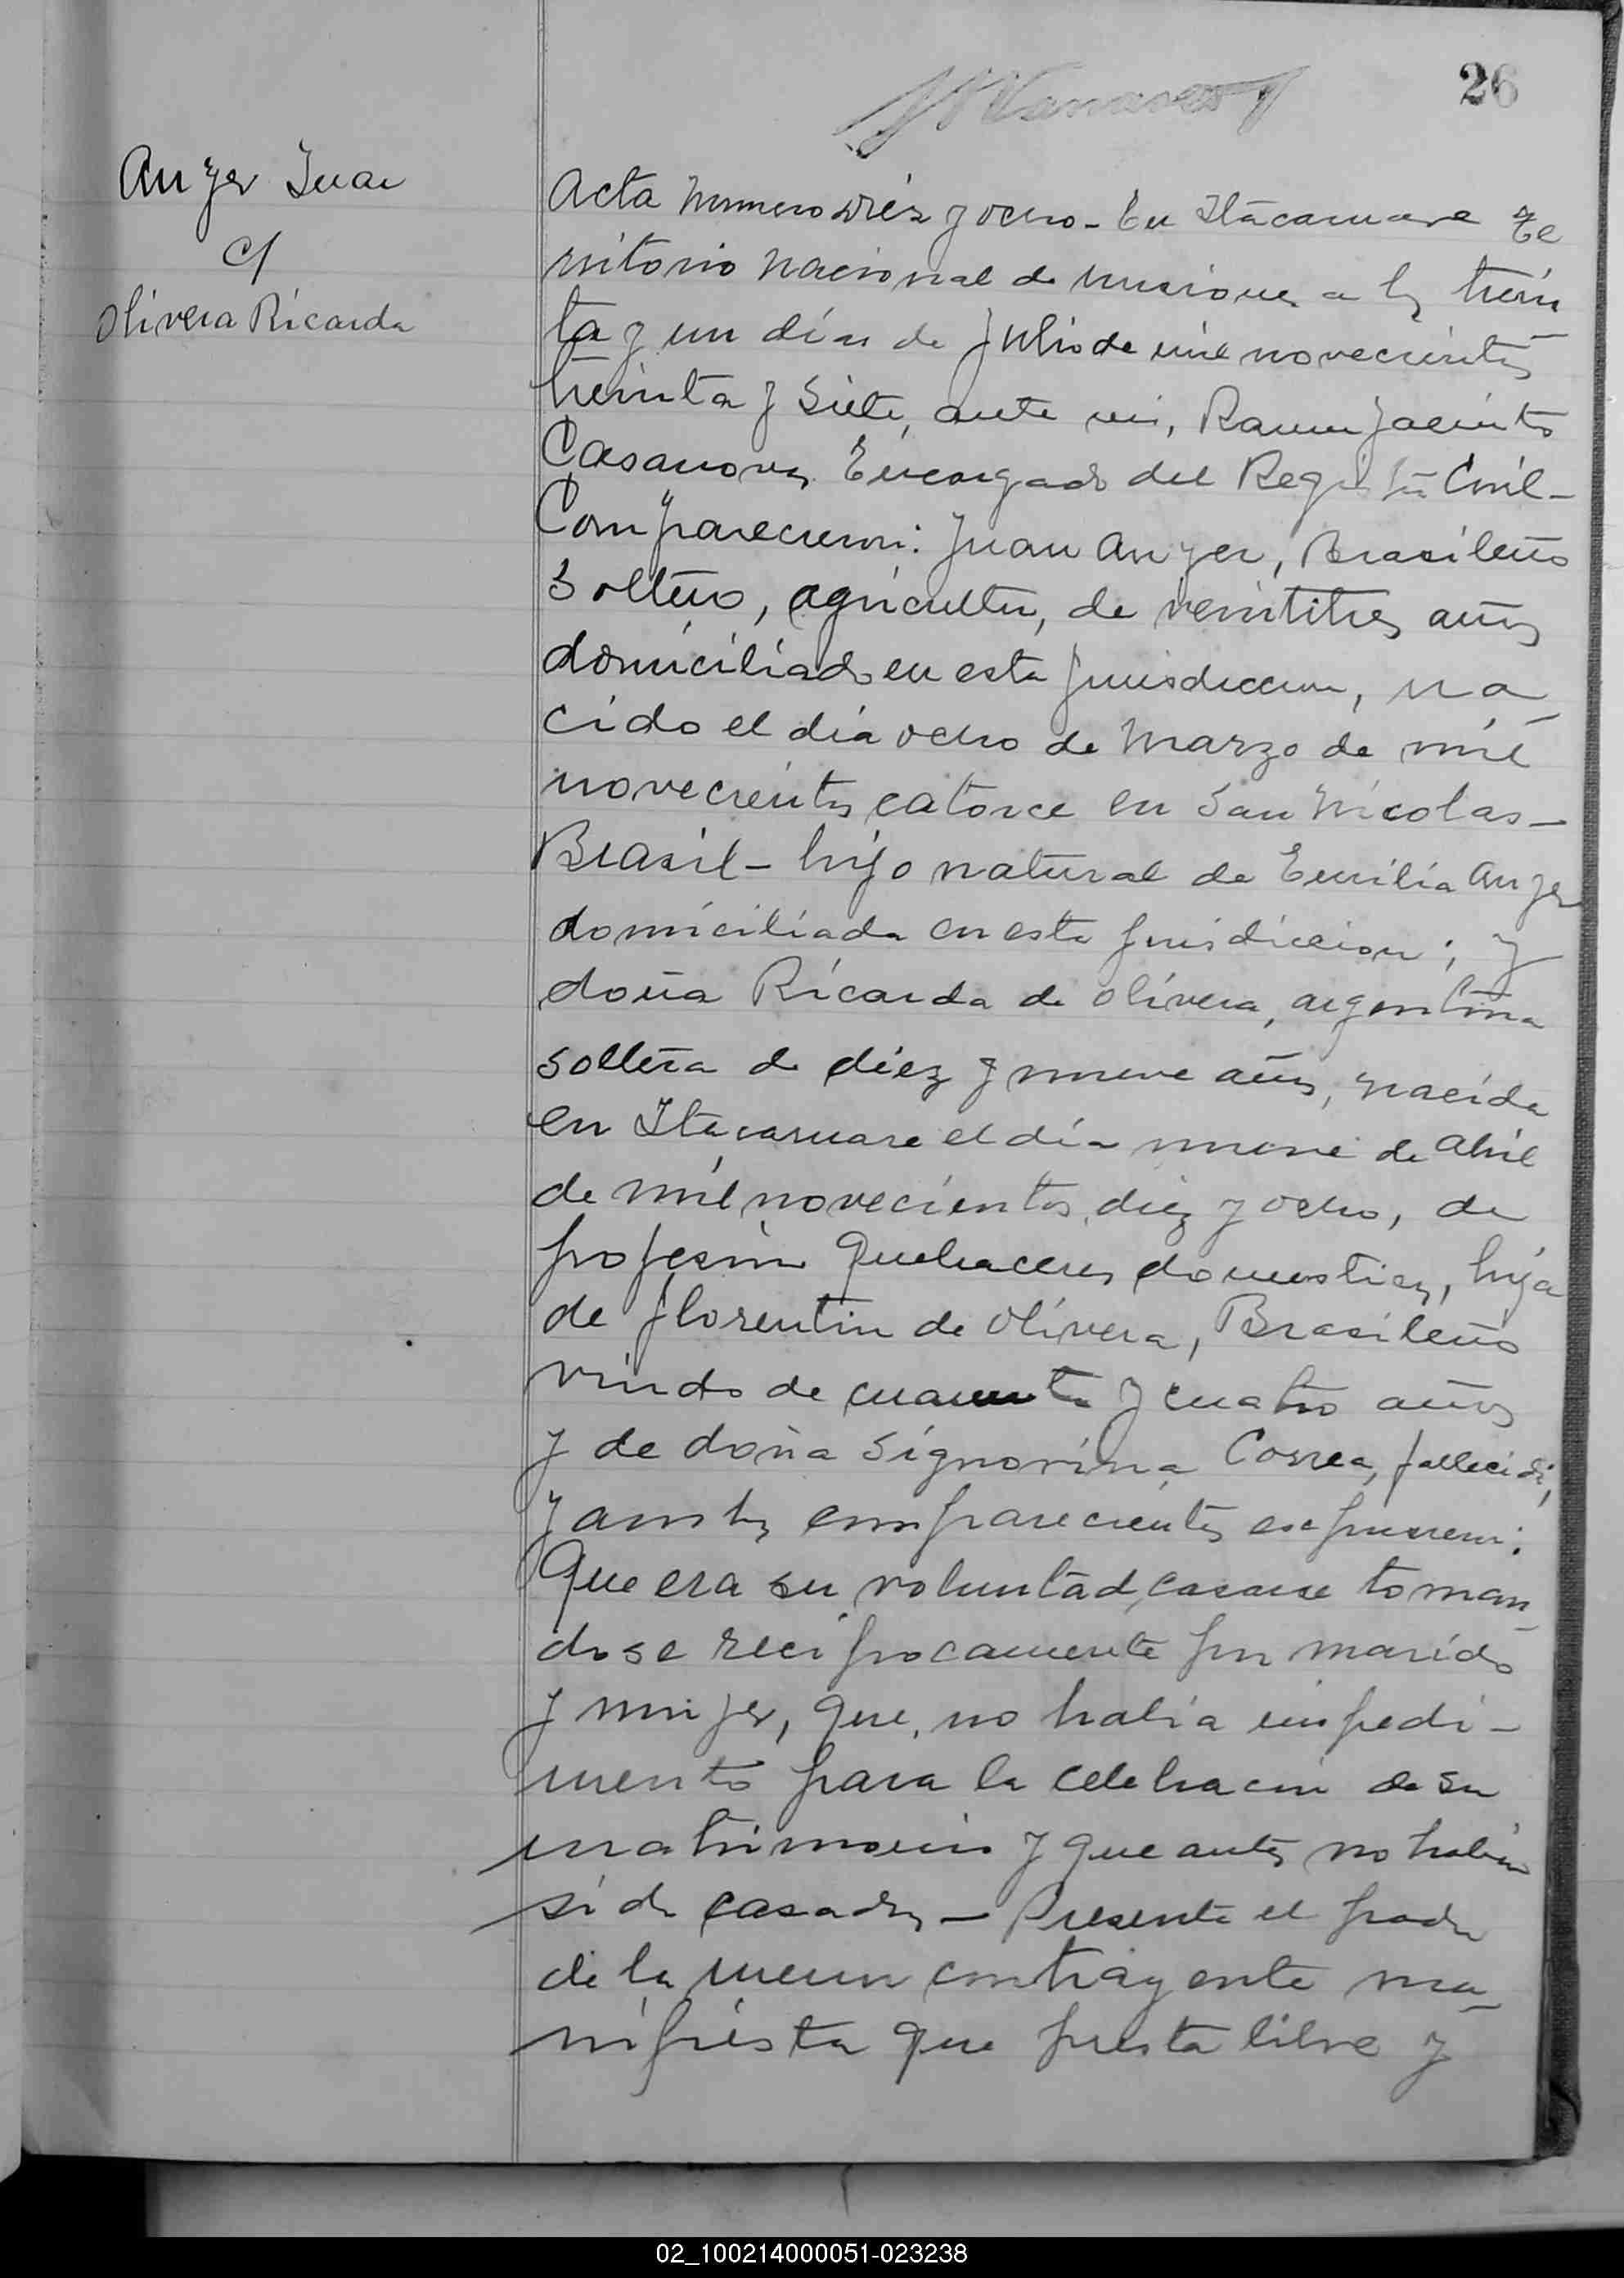 26
Anger Juan
c/
Olivera Ricarda
Acta numero diéz y ocho - En Itacaruare Te
rritorio Nacional de Misiones a los trein
ta y un días de Julio de mil novecientos
treinta y siete, ante mi, Ramon Jacinto
Casanova, Encargado del Registro Civil -
Comparecieron: Juan Anger, Brasileño
Soltero, agricultor, de veintitres años
domiciliado en esta jurisdiccion, na
cido el día ocho de Marzo de mil
novecientos catorce en San Nicolas -
Brasil - hijo natural de Emilia Anger
domiciliada en esta jurisdiccion; y
doña Ricarda de Olivera, argentina
soltera de diez y nueve años, nacida
en Itacaruare el día nueve de Abril
de mil novecientos diez y ocho, de
profesion Quehaceres domesticos, hija
de Florentin de Olivera, Brasileño
viudo de cuarenta y cuatro años
y de doña Signorina Correa, fallecida,
y ambos comparecientes expusieron:
Que era su voluntad, casarse toman
dose reciprocamente por marido
y mujer, que, no habia impedi -
mento para la celebracion de su
matrimonio y que antes no habian
sido casados - Presente el padre
de la menor contrayente ma
nifiesta que presta libre y
02_100214000051-023238